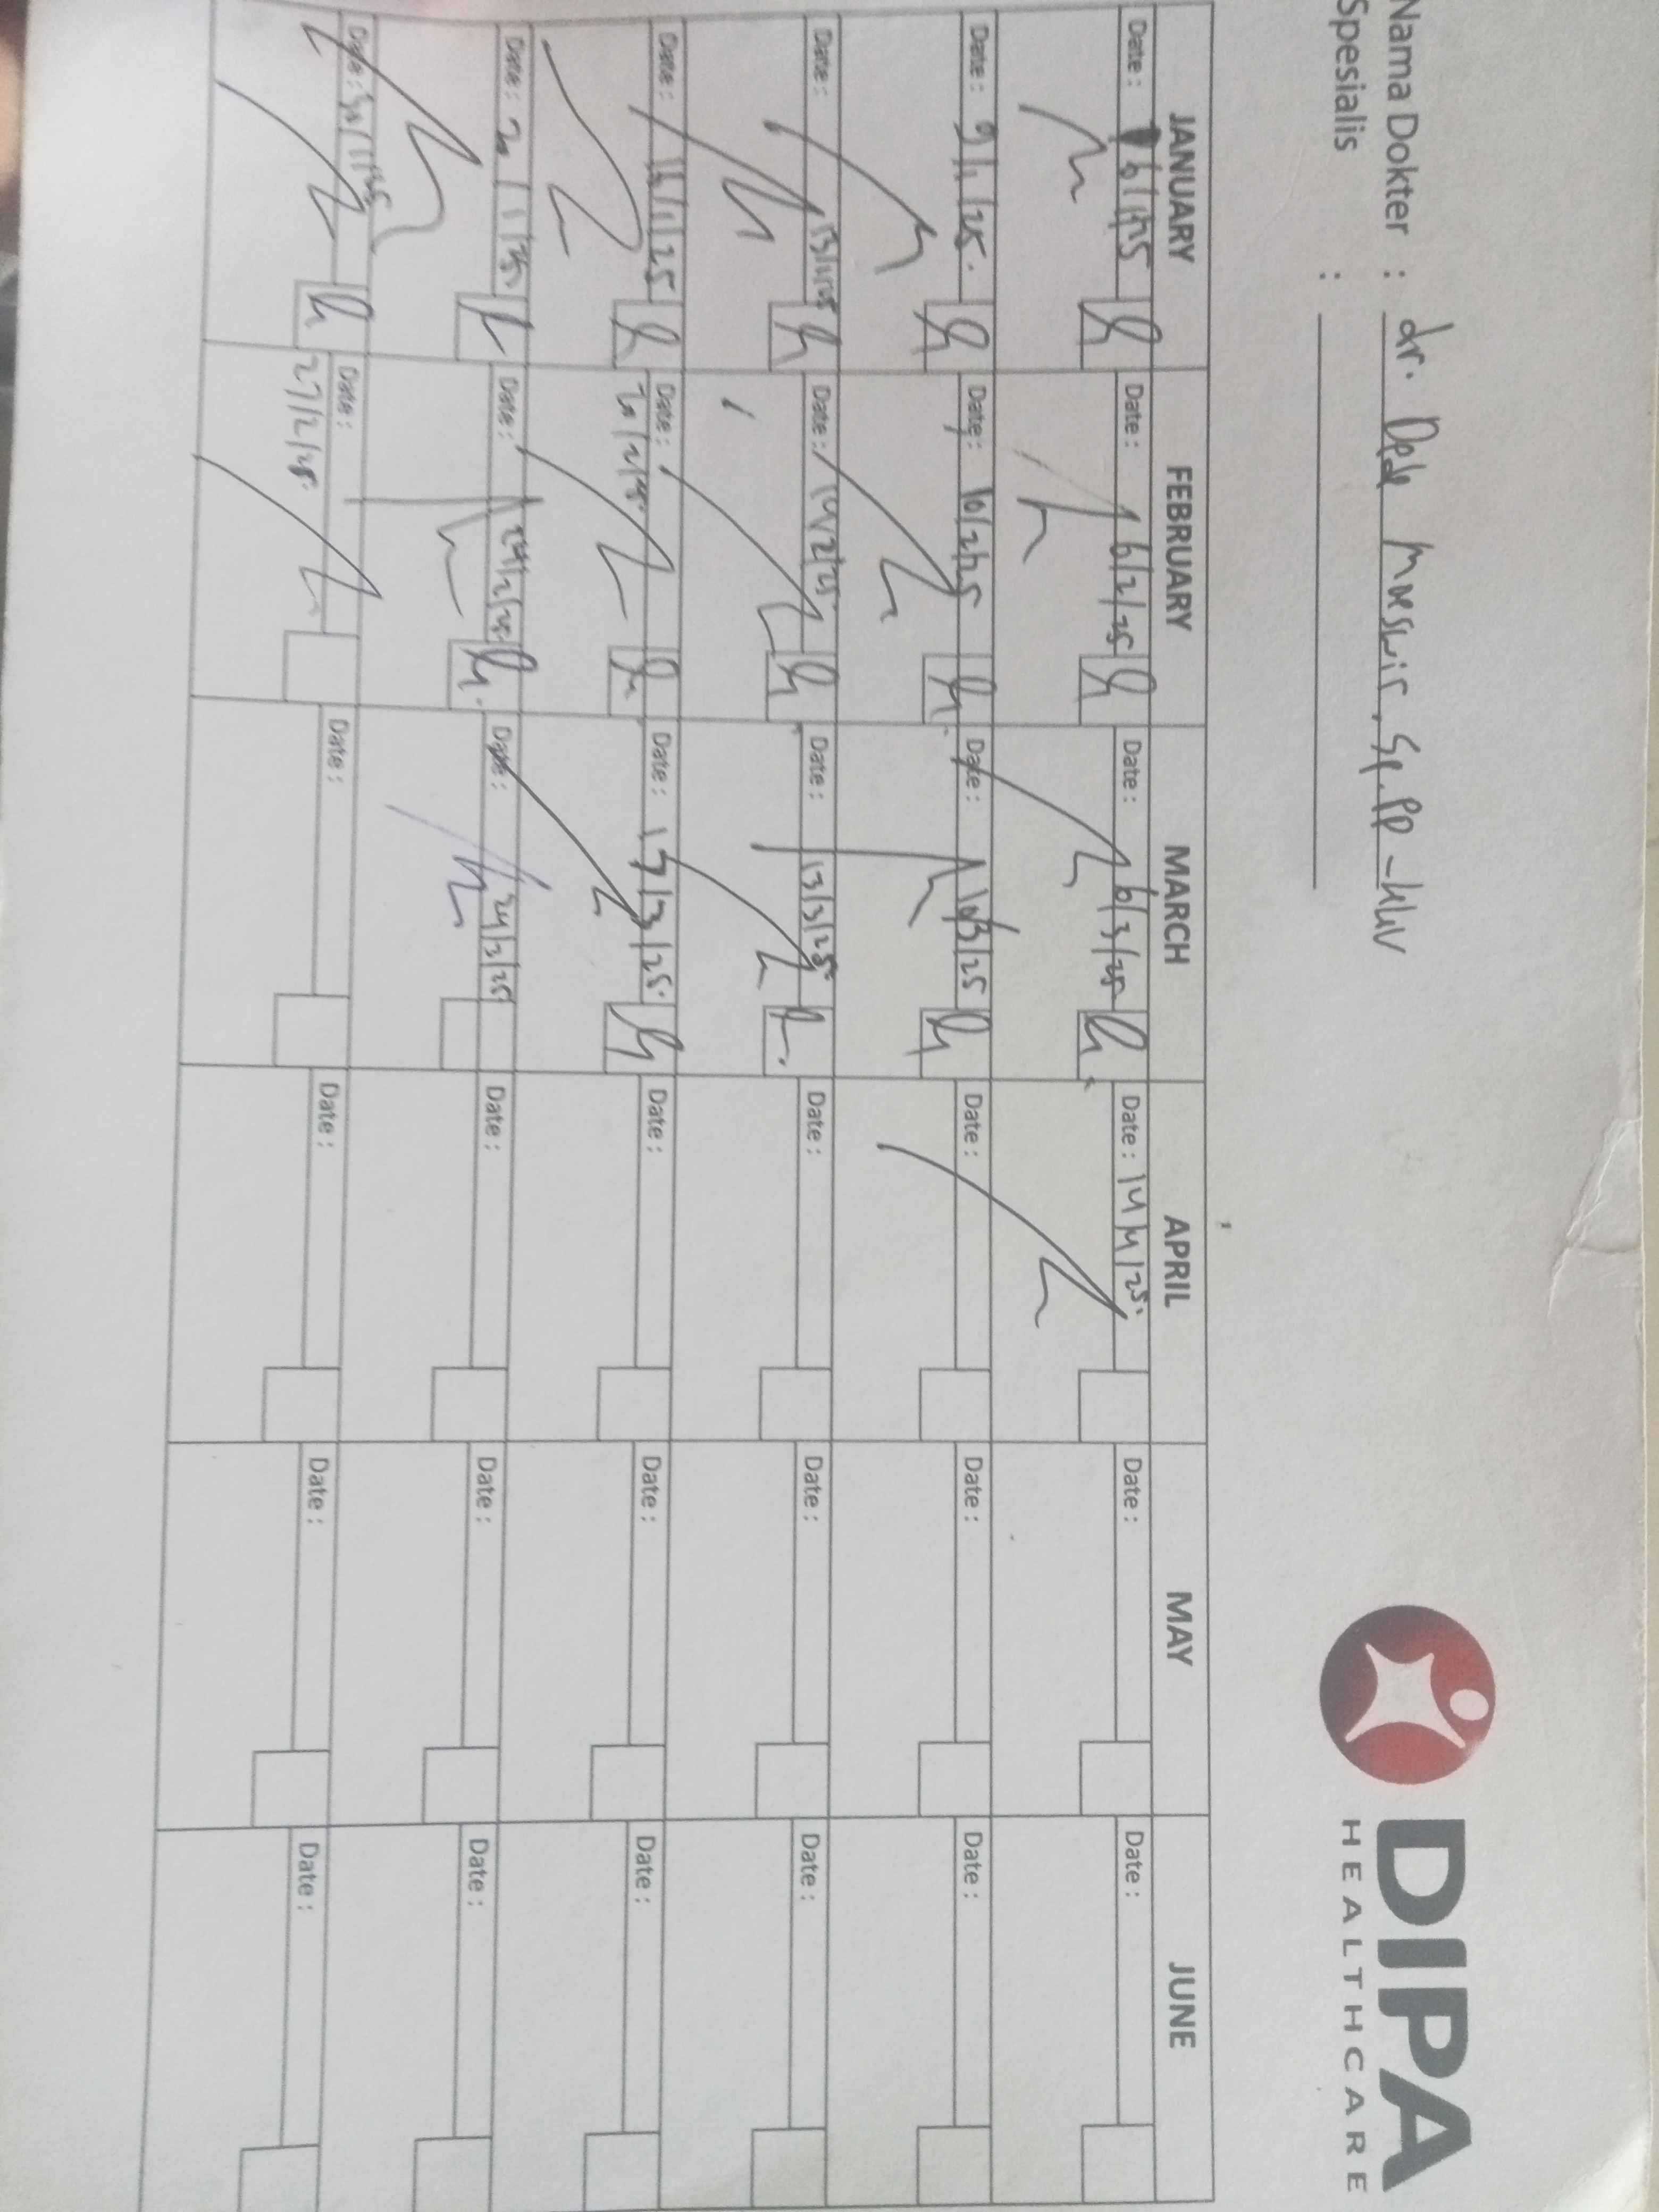 DIPA
HEALTHCARE
Nama Dokter : dr. Dede Moeswir, Sp.PD - KKV
Spesialis :
JANUARY FEBRUARY MARCH APRIL MAY JUNE
Date : 6/1/25 Date : 6/2/25 Date : 6/3/25 Date : 14/4/25. Date : Date :
Date : 9/1/25. Date : 10/2/25 Date : 10/3/25 Date : Date : Date :
Date : 13/1/25 Date : 14/2/25. Date : 13/3/25. Date : Date : Date :
Date : 16/1/25 Date : 20/2/25. Date : 17/3/25. Date : Date : Date :
Date : 20/1/25. Date : 24/2/25. Date : 24/3/25 Date : Date : Date :
Date : 30/1/25 Date : 27/2/25. Date : Date : Date : Date :